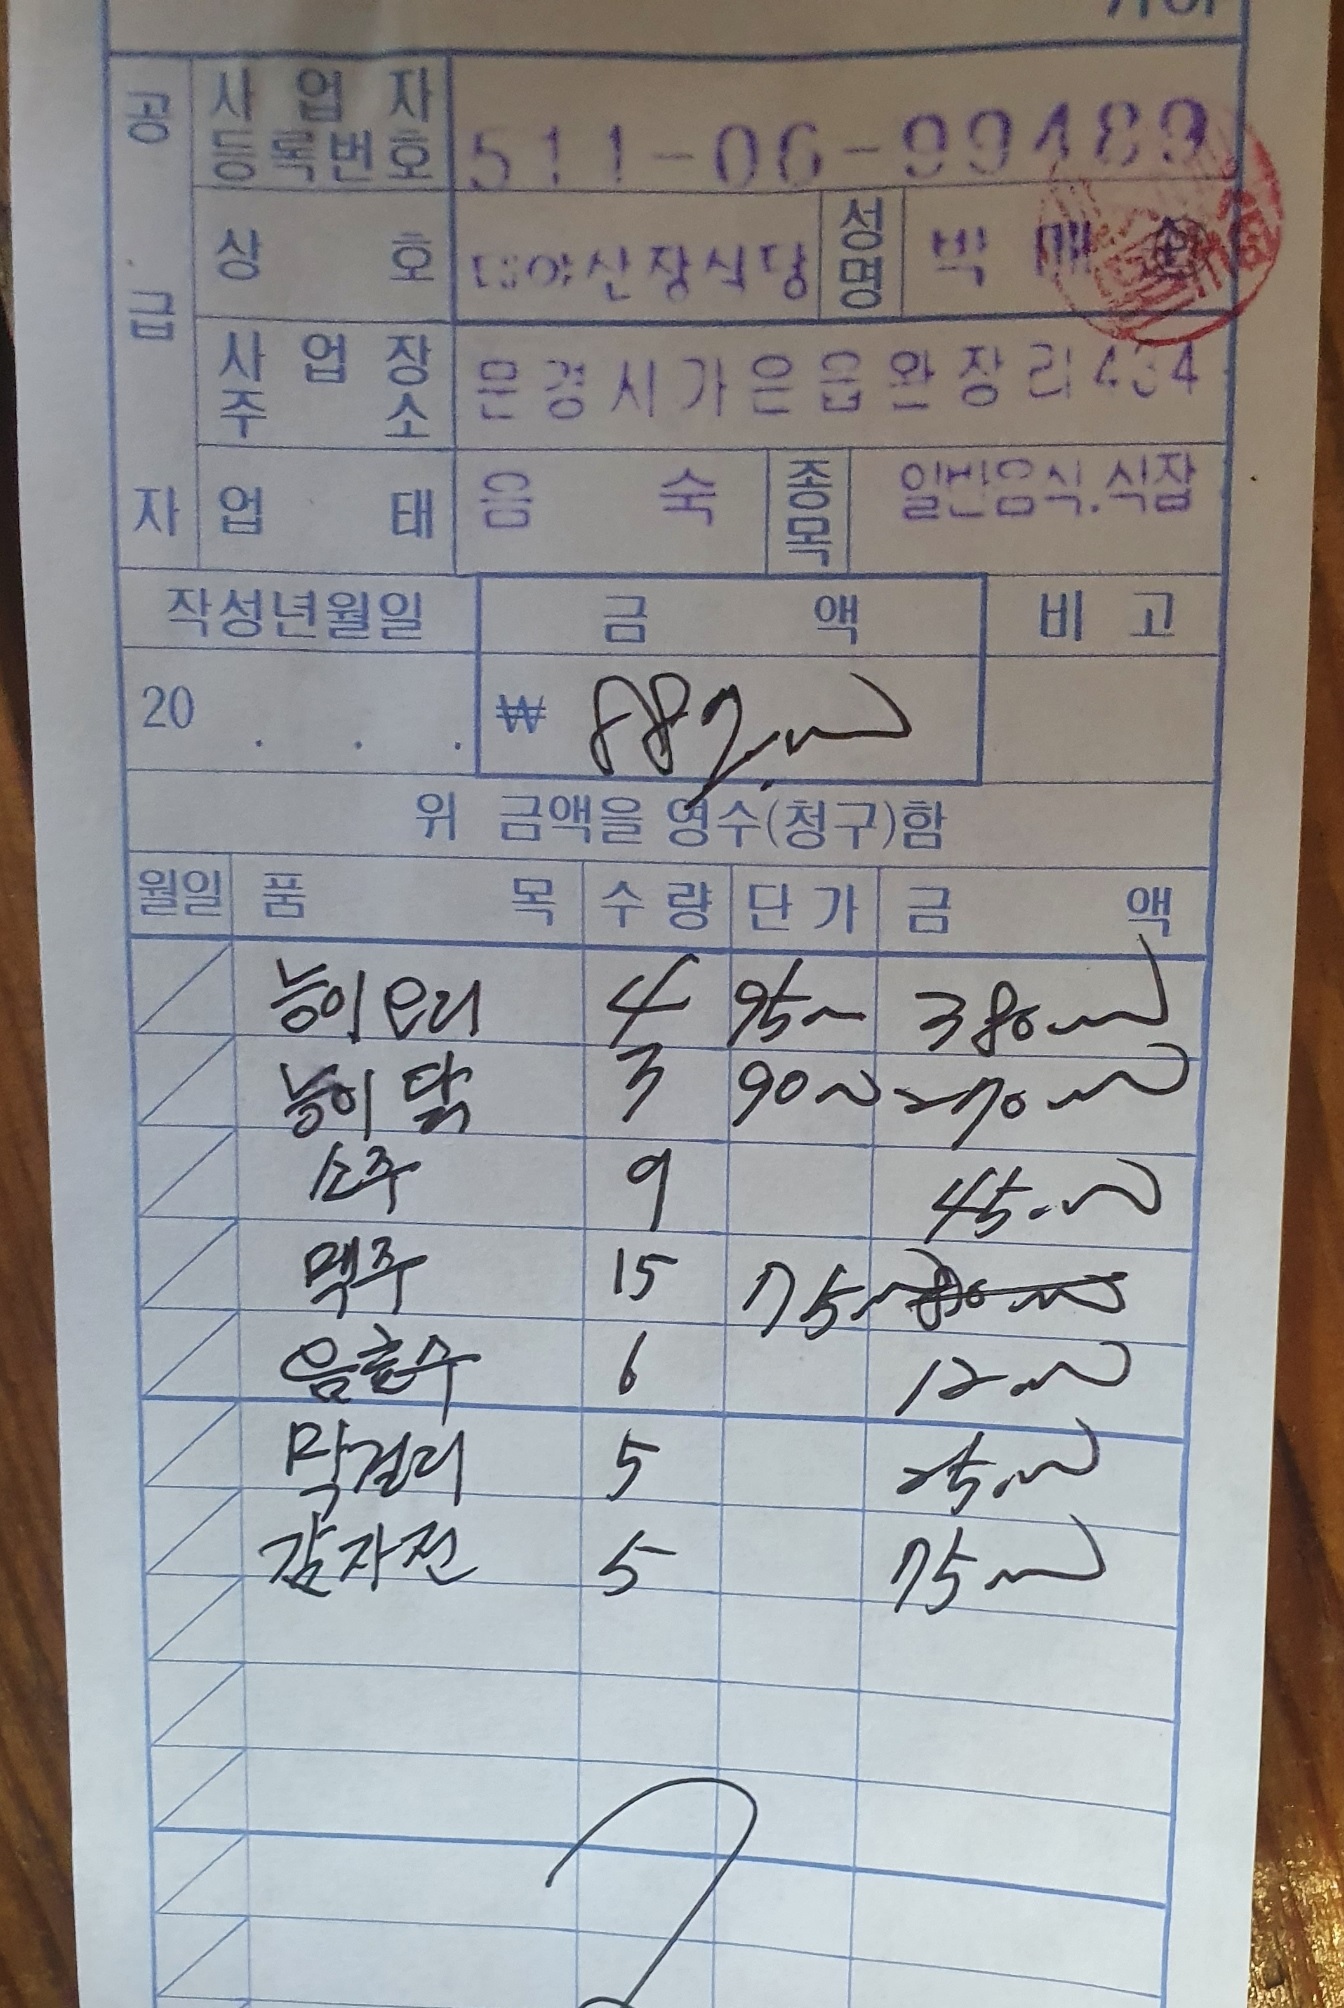 공급자
사업자등록번호 511-06-99489
상호 산장식당 성명 박매
사업장주소 문경시가은읍완장리434
업태 음숙 종목 일반음식.식잡
작성년월일 금액 비고
20 . . . ₩ 882,000
위 금액을 영수(청구)함
월일 품목 수량 단가 금액
능이오리 4 95 380,000
능이닭 3 90 270,000
소주 9 45,000
맥주 15 75
음료수 6 12,000
막걸리 5 25,000
감자전 5 75,000